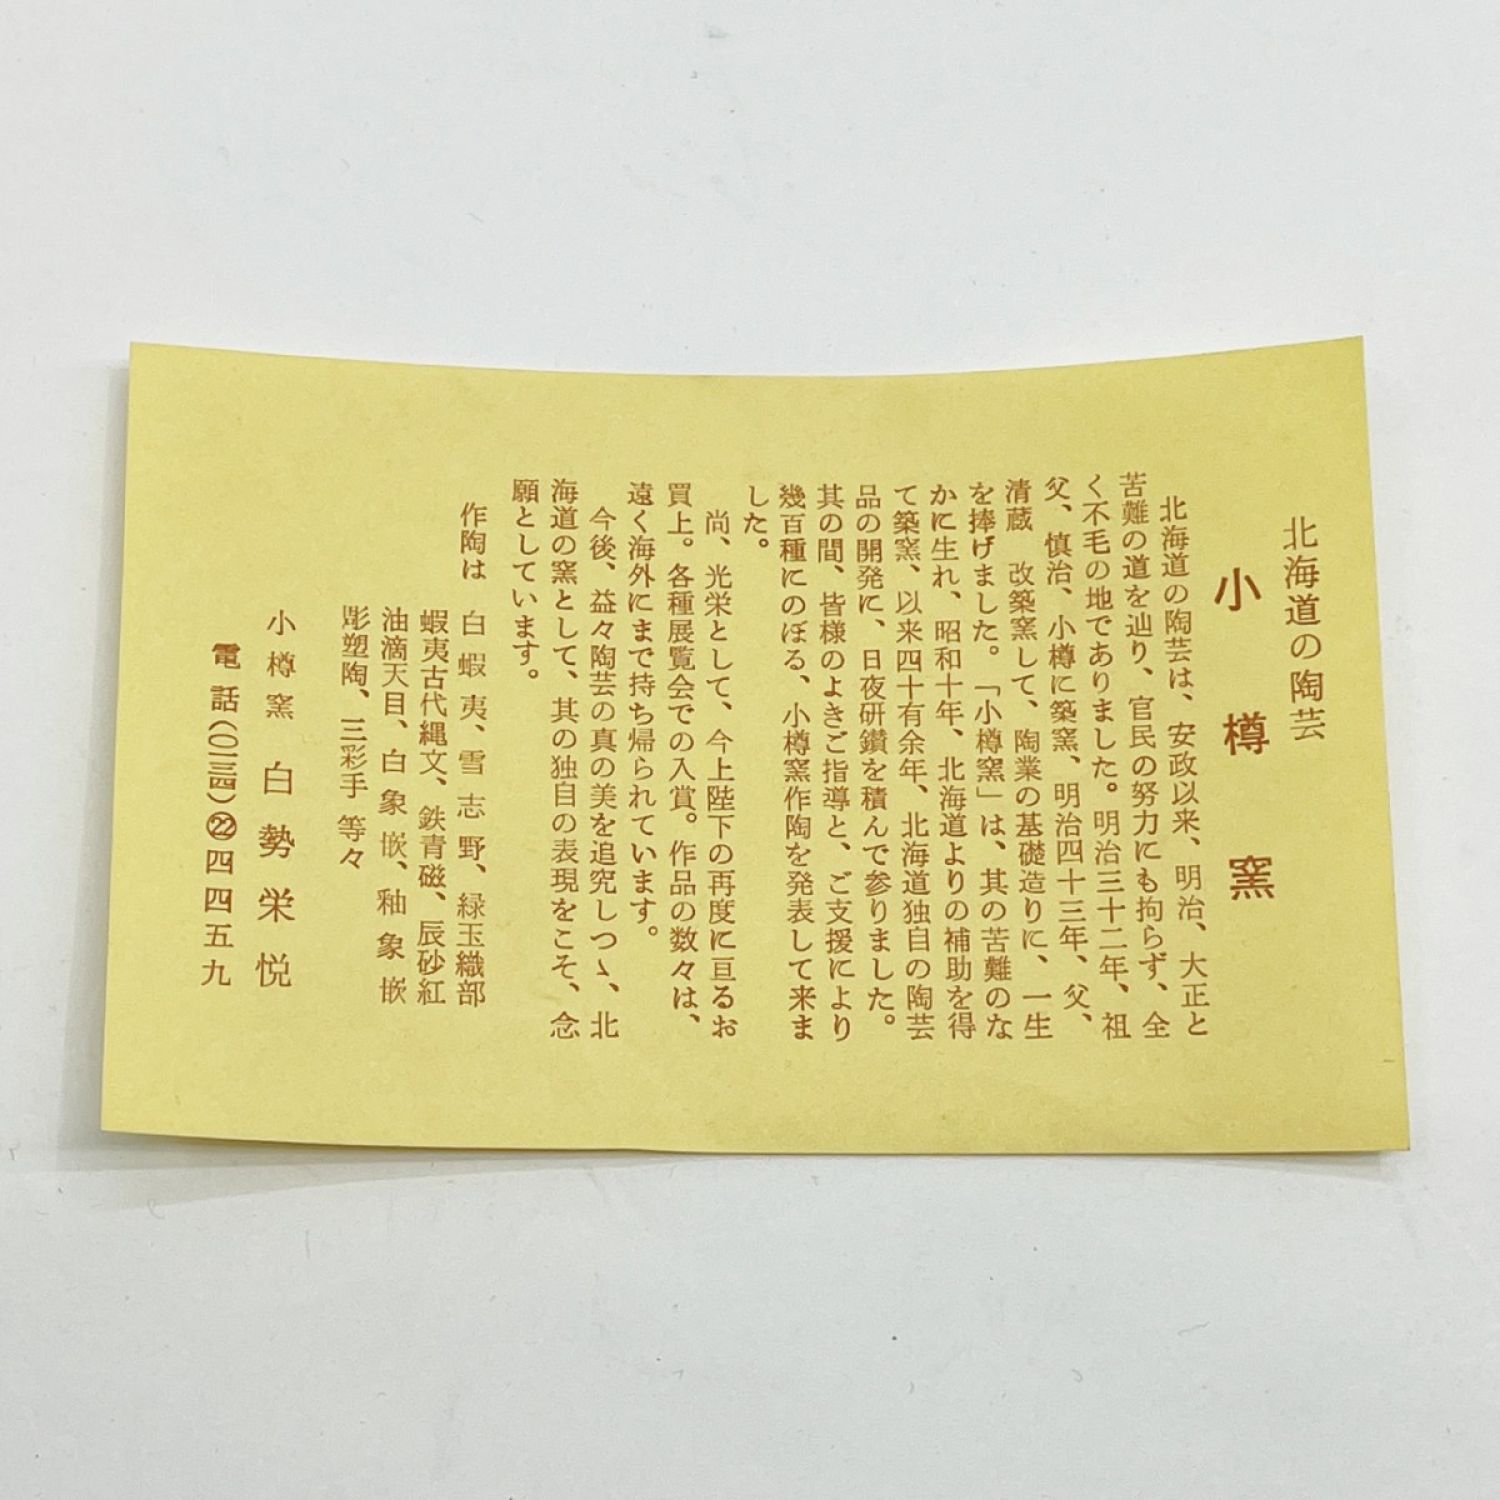 北海道の陶芸
小樽窯
北海道の陶芸は、安政以来、明治、大正と
苦難の道を辿り、官民の努力にも拘らず、全
く不毛の地でありました。明治三十二年、祖
父、慎治、小樽に築窯、明治四十三年、父、
清蔵　改築窯して、陶業の基礎造りに、一生
を捧げました。「小樽窯」は、其の苦難のな
かに生れ、昭和十年、北海道よりの補助を得
て築窯、以来四十有余年、北海道独自の陶芸
品の開発に、日夜研鑽を積んで参りました。
其の間、皆様のよきご指導と、ご支援により
幾百種にのぼる、小樽窯作陶を発表して来ま
した。
尚、光栄として、今上陛下の再度に亘るお
買上。各種展覧会での入賞。作品の数々は、
遠く海外にまで持ち帰られています。
今後、益々陶芸の真の美を追究しつゝ、北
海道の窯として、其の独自の表現をこそ、念
願としています。
作陶は　白蝦夷、雪志野、緑玉織部
蝦夷古代縄文、鉄青磁、辰砂紅
油滴天目、白象嵌、釉象嵌
彫塑陶、三彩手 等々
小樽窯　白勢栄悦
電話(〇一三四)㉒四四五九